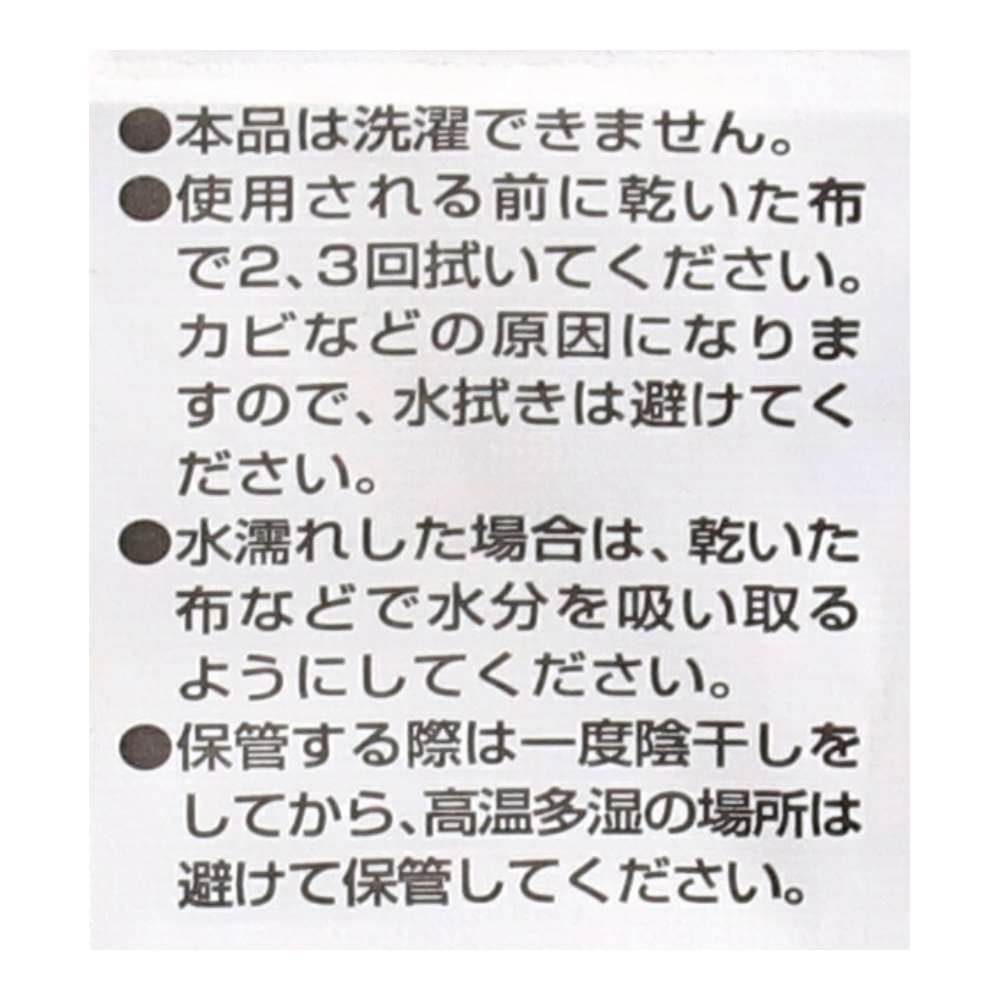 ●本品は洗濯できません。
●使用される前に乾いた布
で2、3回拭いてください。
カビなどの原因になりま
すので、水拭きは避けてく
ださい。
●水濡れした場合は、乾いた
布などで水分を吸い取る
ようにしてください。
●保管する際は一度陰干しを
してから、高温多湿の場所は
避けて保管してください。